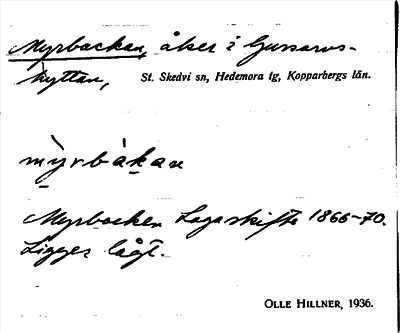 Myrbackan, åker i Gussarvs-
hyttan, St. Skedvi sn, Hedemora tg, Kopparbergs län.
mỳrbàkan
Myrbacken Lagaskifte 1866-70.
Ligger lågt.
OLLE HILLNER, 1936.